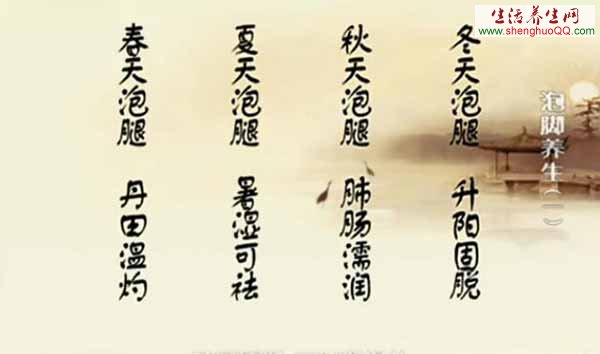 生活养生网
www.shenghuoQQ.com
泡脚养生（一）
春天泡腿 丹田温灼
夏天泡腿 暑湿可祛
秋天泡腿 肺肠濡润
冬天泡腿 升阳固脱